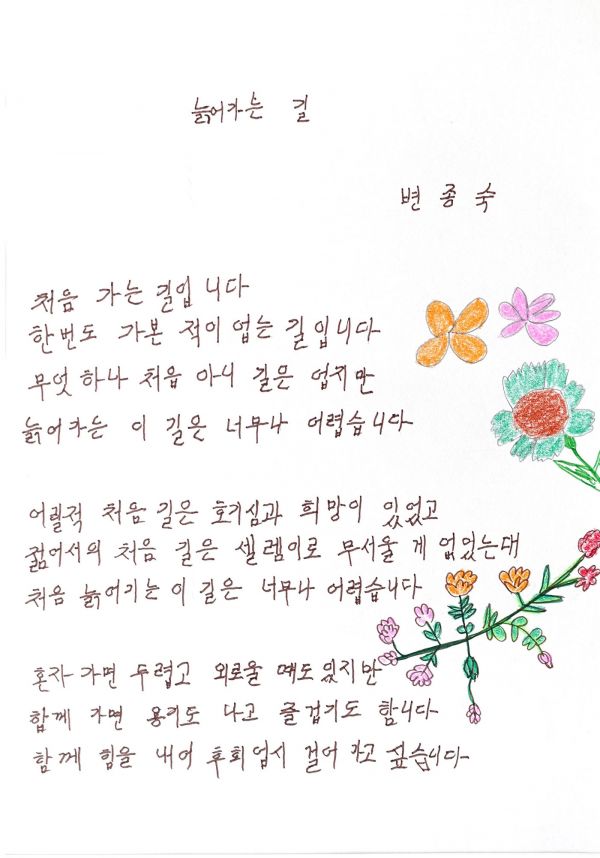 늙어가는 길
변종숙
처음 가는 길입니다
한번도 가본 적이 업는 길입니다
무엇 하나 처음 아니 길은 업지만
늙어가는 이 길은 너무나 어렵습니다
어릴적 처음 길은 호기심과 희망이 있었고
젊어서의 처음 길은 셀렘이로 무서울 게 없었는대
처음 늙어가는 이 길은 너무나 어렵습니다
혼자 가면 두렵고 외로울 때도 있지만
함께 가면 용기도 나고 즐겁기도 합니다
함께 힘을 내어 후회업시 걸어 가고 싶습니다